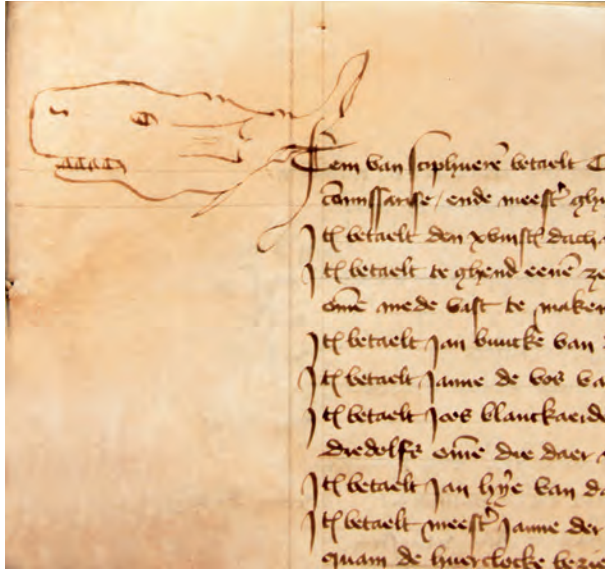 Jtem van sciphueren betaelt
commissarise / ende meestr
Jt betaelt den xviijsten dach
Jt betaelt te ghend eenē
omē mede vast te maken
Jt betaelt Jan buucke van
Jt betaelt Janne de vos va
Jt betaelt Joos blanckaerde
diedolfs omē die daer
Jt betaelt Jan hye van da
Jt betaelt meestr Janne der
quam de huerclocke bezie